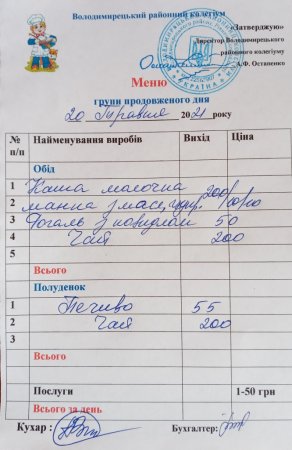 Володимирецький районний колегіум
«Затверджую»
Директор Володимирецького
районного колегіуму
А.Ф. Остапенко
УКРАЇНА
Меню
групи продовженого дня
20 Травня 2021 року
№ п/п Найменування виробів Вихід Ціна
Обід
1 Каша молочна
2 манна з мас, цукр. 200/10/10
3 Рогаль з повидлом 50
4 Чай 200
5
Всього
Полуденок
1 Печиво 55
2 Чай 200
3
Всього
Послуги 1-50 грн
Всього за день
Кухар : Бухгалтер: